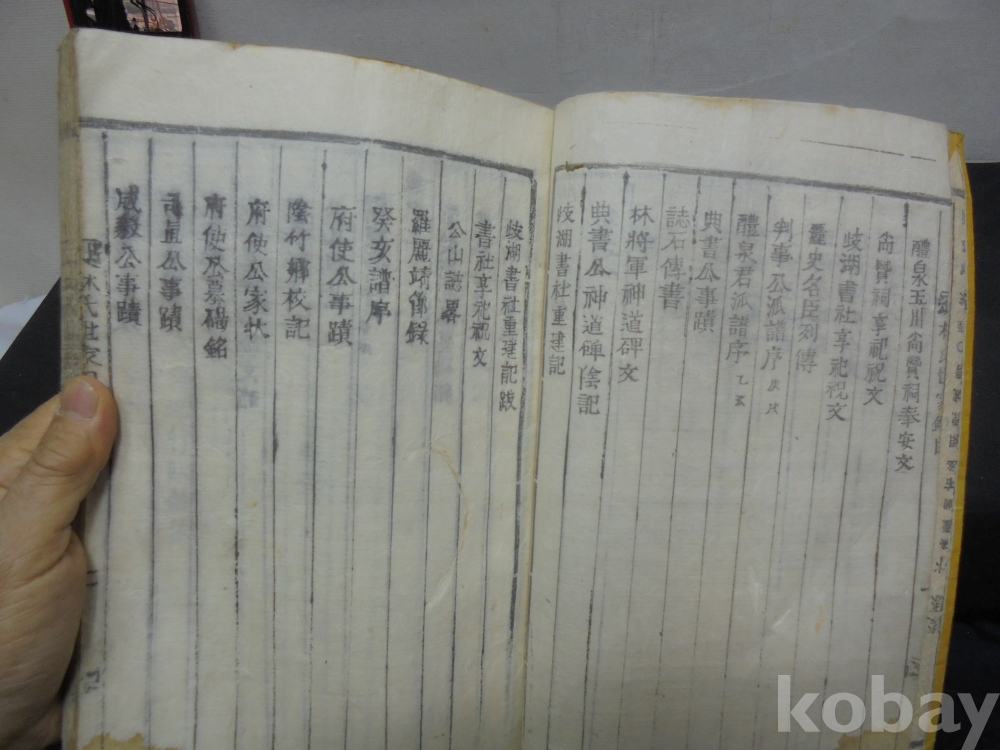 醴泉玉川尙賢祠奉安文
尙賢祠享祀祝文
岐湖書社享祀祝文
麗史名臣列傳
判事公派譜序 庚戌
醴泉君派譜序 乙亥
典書公事蹟
誌石傳書
林將軍神道碑文
典書公神道碑陰記
岐湖書社重建記
岐湖書社重建記跋
書社享祀祝文
公山誌畧
羅麗靖傳錄
癸亥譜序
府使公事蹟
陰竹鄕校記
府使公家狀
府使公墓碣銘
司直公事蹟
威毅公事蹟
林氏世
kobay